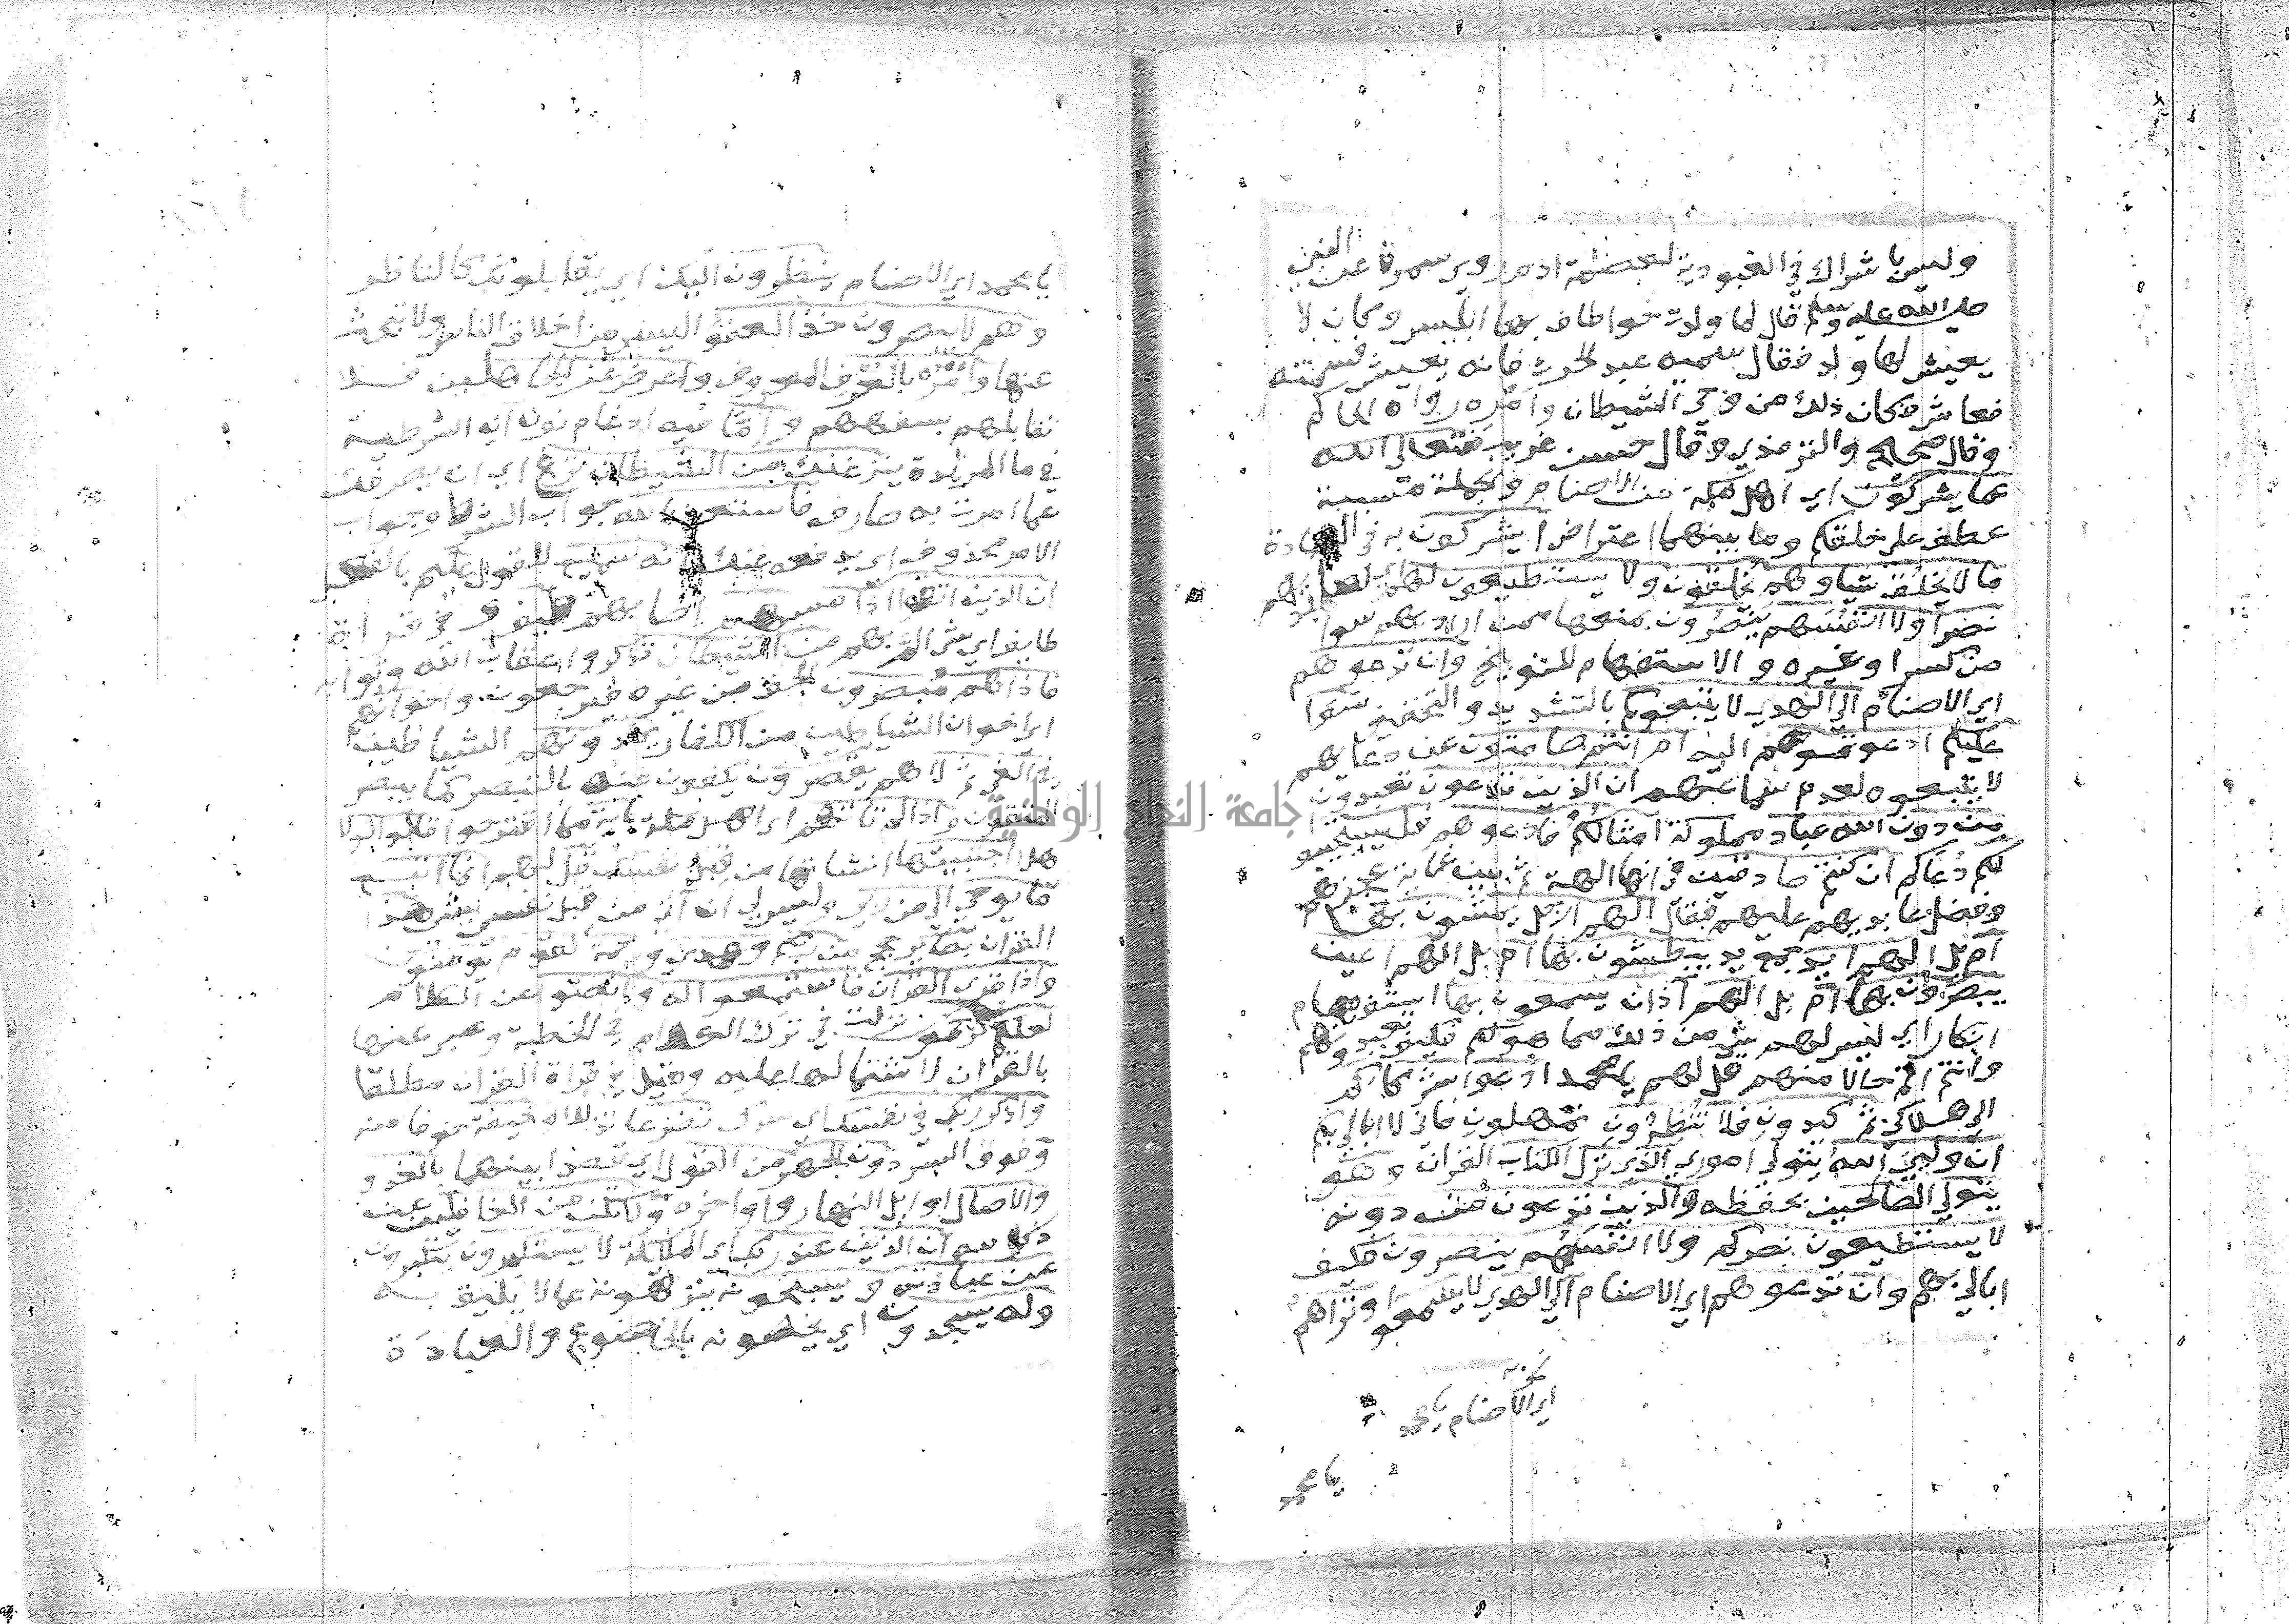 وليس باشراك في العبودية لعصمة ادم وروى سمرة عن النبي
صلى الله عليه وسلم قال لما ولدت حوا طاف بها ابليس وكان لا
يعيش لها ولد فقال سميه عبد الحرث فانه يعيش فسمته
فعاش فكان ذلك من وحي الشيطان وامره رواه الحاكم
وقال صحيح والترمذي وقال حسن غريب فتعالى الله
عما يشركون اي اهل مكة من الاصنام والجملة مسببة
عطف على خلقكم وما بينهما اعتراض ايشركون به في العبادة
ما لا يخلق شيا وهم يخلقون ولا يستطيعون لهم اي لعابديهم
نصرا ولا انفسهم ينصرون بمنعها ممن اراد بهم سوا
من كسر او غيره والاستفهام للتوبيخ وان تدعوهم
اي الاصنام الى الهدي لا يتبعوكم بالتشديد والتخفيف سوا
عليكم ادعوتموهم اليه ام انتم صامتون عن دعايهم
لا يتبعوه لعدم سماعهم ان الذين تدعون تعبدون
من دون الله عباد مملوكة امثالكم فادعوهم فليستجيبوا
لكم دعاكم ان كنتم صادقين في انها الهة ثم بين غاية عجزهم
وفضل عابديهم عليهم فقال الهم ارجل يمشون بها
ام بل الهم ايد جمع يد يبطشون بها ام بل الهم اعين
يبصرون بها ام بل الهم آذان يسمعون بها استفهام
انكار اي ليس لهم شي من ذلك مما هو لكم فكيف تعبدونهم
وانتم اتم حالا منهم قل لهم يا محمد ادعوا شركاكم
الى هلاكي ثم كيدون فلا تنظرون تمهلون فاني لا ابالي بكم
ان وليي الله يتولى اموري الذي نزل الكتاب القران وهو
يتولى الصالحين بحفظه والذين تدعون من دونه
لا يستطيعون نصركم ولا انفسهم ينصرون فكيف
ابالي بهم وان تدعوهم اي الاصنام الى الهدي لا يسمعوا وتراهم
اي الاصنام يا محمد
يا محمد
يا محمد اي الاصنام ينظرون اليك اي يقابلونك كالناظر
وهم لا يبصرون خذ العفو اليسر من اخلاق الناس ولا تبحث
عنها وأمر بالعرف المعروف واعرض عن الجاهلين فلا
تقابلهم بسفههم واما فيه ادغام نون ان الشرطية
في ما المزيدة ينزغنك من الشيطان نزغ اي ان يصرفك
عما امرت به صارف فاستعذ بالله جواب الشرط وجواب
الامر محذوف اي يدفعه عنك انه سميع للقول عليم بالفعل
ان الذين اتقوا اذا مسهم اصابهم طيف وفي قراءة
طايف اي شي الم بهم من الشيطان تذكروا عقاب الله وثوابه
فاذا هم مبصرون الحق من غيره فيرجعون واخوانهم
اي اخوان الشياطين من الكفار يمدونهم الشياطين
في الغي ثم لا هم يقصرون يكفون عنه بالتبصر كما يبصر
المتقون واذا لم تاتهم اي اهل مكة باية مما اقترحوا قالوا لولا
هلا اجتبيتها انشاتها من قبل نفسك قل لهم انما اتبع
ما يوحى الي من ربي وليس لي ان آتي من قبل نفسي بشي هذا
القران بصاير حجج من ربكم وهدى ورحمة لقوم يومنون
واذا قرى القران فاستمعوا له وانصتوا عن الكلام
لعلكم ترحمون نزلت في ترك الكلام في الخطبة وعبر عنها
بالقران لاشتمالها عليه وقيل في قراة القران مطلقا
واذكر ربك في نفسك اي سرا تضرعا تذللا وخيفة خوفا منه
وفوق السر دون الجهر من القول اي قصدا بينهما بالغدو
والاصال اوايل النهار واواخره ولا تكن من الغافلين عن
ذكر الله ان الذين عند ربك اي الملايكة لا يستكبرون يتكبرون
عن عبادته ويسبحونه ينزهونه عما لا يليق به
وله يسجدون اي يخصونه بالخضوع والعبادة
جامعة النجاح الوطنية